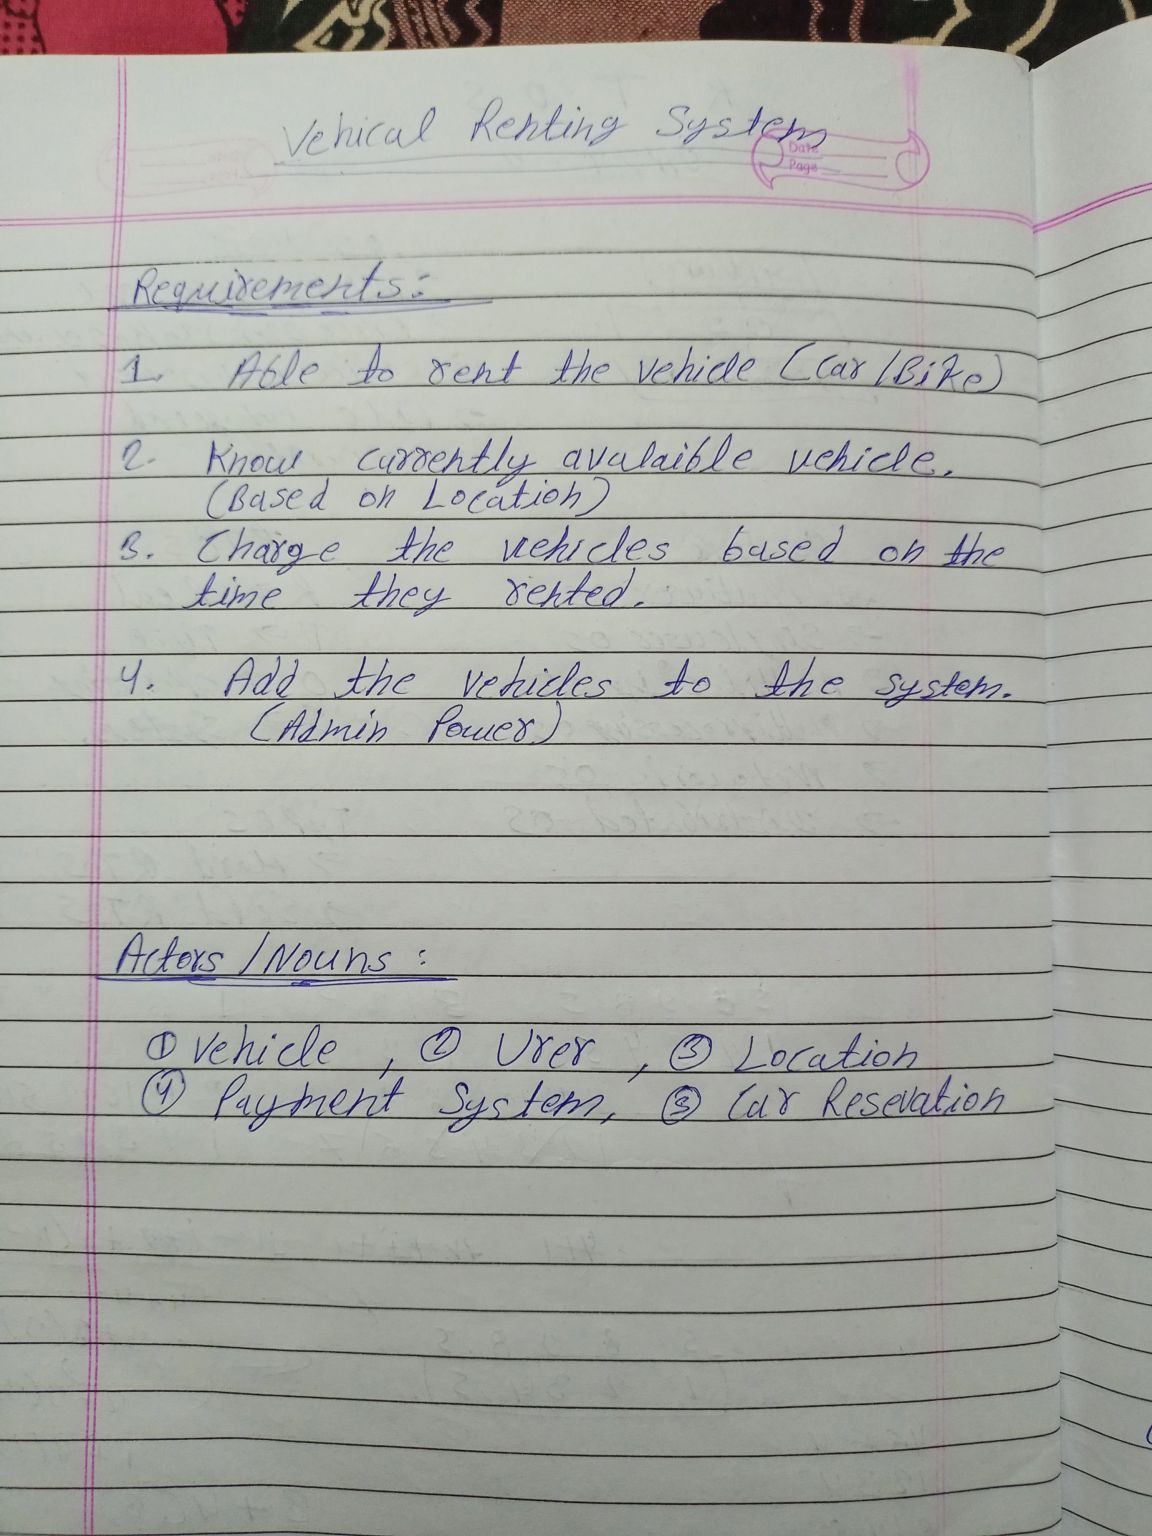 Vehical Renting System
Date
Page
Requirements:
1. Able to rent the vehicle (Car/Bike)
2. Know currently avalaible vehicle.
(Based on Location)
3. Charge the vehicles based on the
time they rented.
4. Add the vehicles to the system.
(Admin Power)
Actors/Nouns:
① Vehicle, ② User, ③ Location
④ Payment System, ⑤ Car Resevation